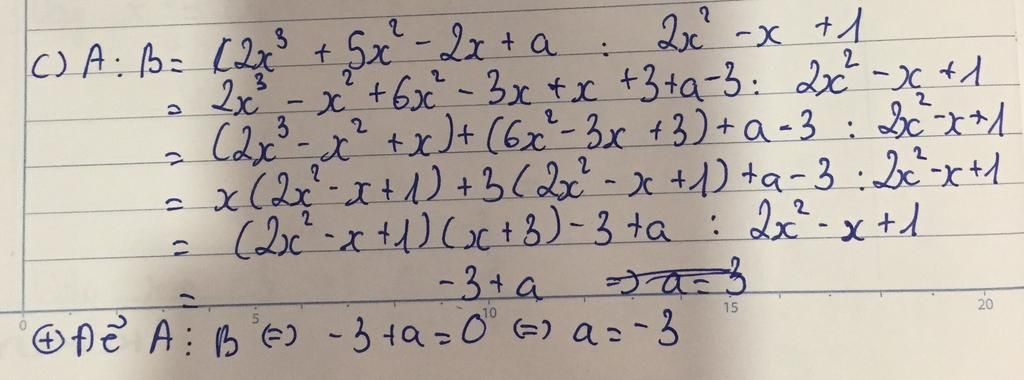 c) A : B = (2x³ + 5x² - 2x + a : 2x² - x + 1
= 2x³ - x² + 6x² - 3x + x + 3 + a - 3 : 2x² - x + 1
= (2x³ - x² + x) + (6x² - 3x + 3) + a - 3 : 2x² - x + 1
= x(2x² - x + 1) + 3(2x² - x + 1) + a - 3 : 2x² - x + 1
= (2x² - x + 1)(x + 3) - 3 + a : 2x² - x + 1
= -3 + a => a = 3
0 5 10 15 20
⊕ Để A : B <=> -3 + a = 0 <=> a = -3